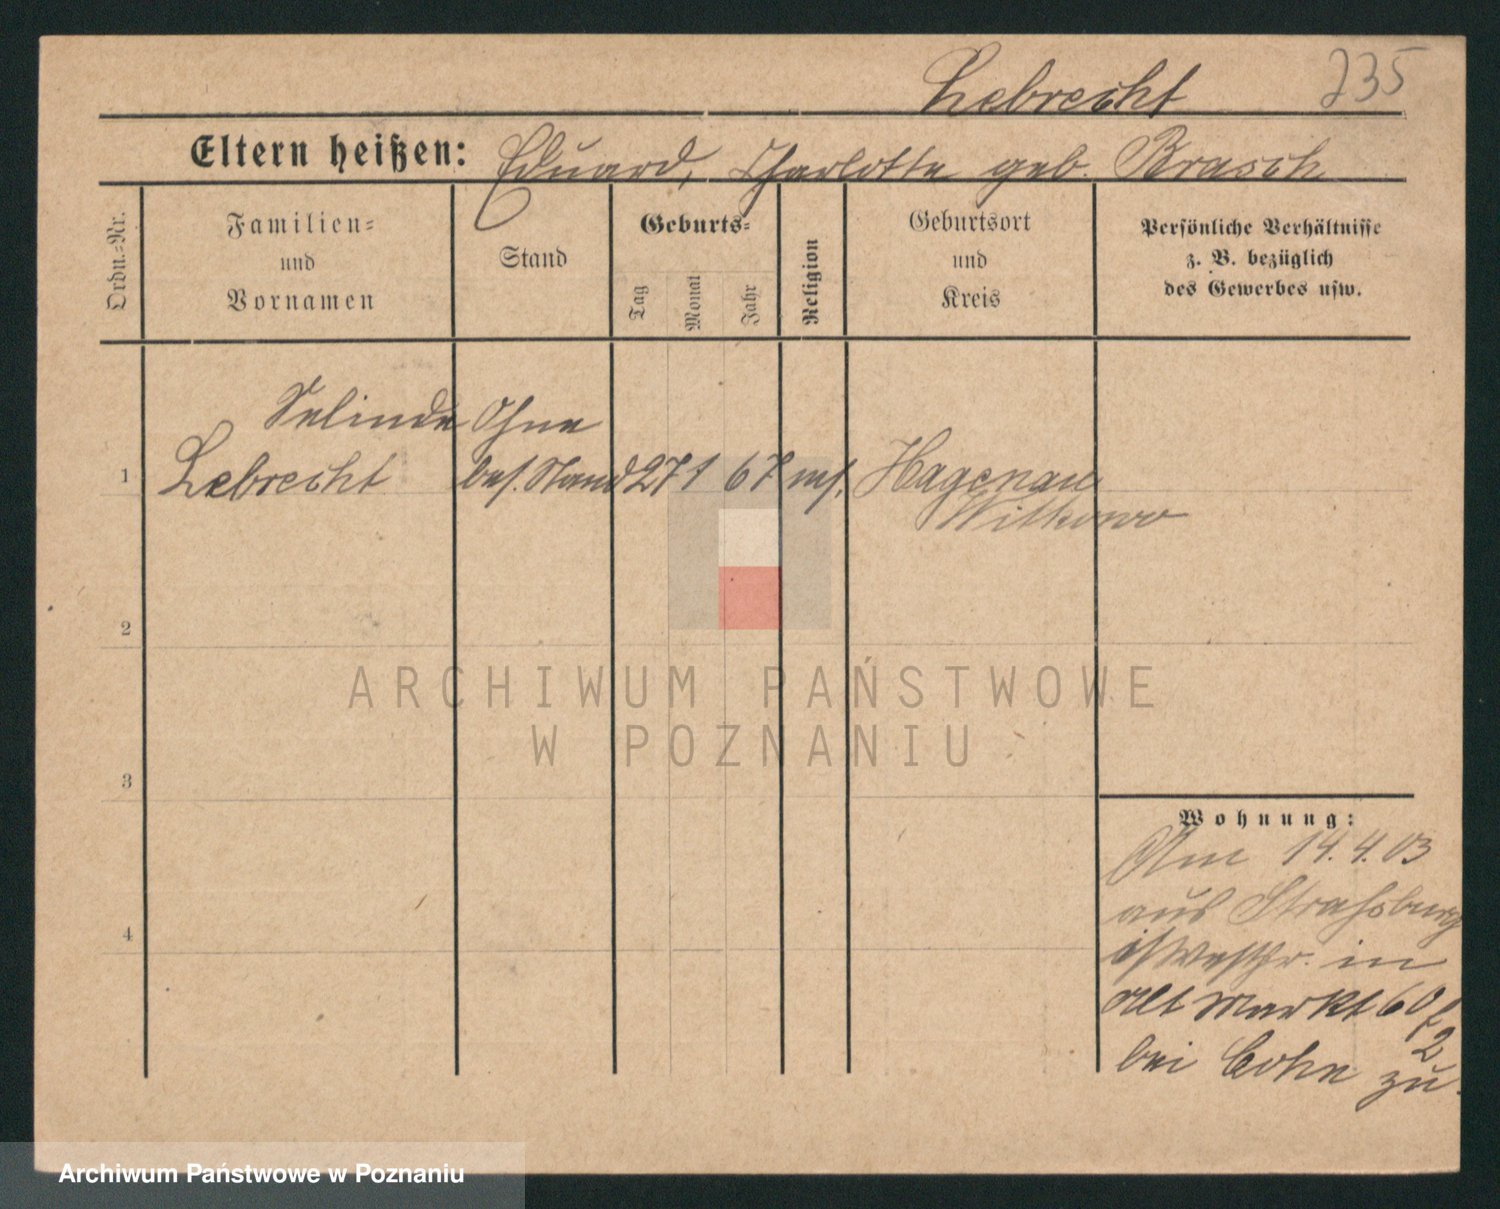 Lebrecht 235
Eltern heißen: Eduard, Charlotte geb. Brasch
Ordn.-Nr.
Familien-
und
Vornamen
Stand
Geburts-
Tag
Monat
Jahr
Religion
Geburtsort
und
Kreis
Persönliche Verhältnisse
z. B. bezüglich
des Gewerbes usw.
Selinde Ohne
1 Lebrecht bes. Stand 27 1 67 mos. Hagenau
Witkowo
2
ARCHIWUM PAŃSTWOWE
W POZNANIU
3
Wohnung:
Am 14.4.03
aus Strasburg
i/Westpr. in
4
Alt Markt 60 I
2
bei Cohn zu.
Archiwum Państwowe w Poznaniu